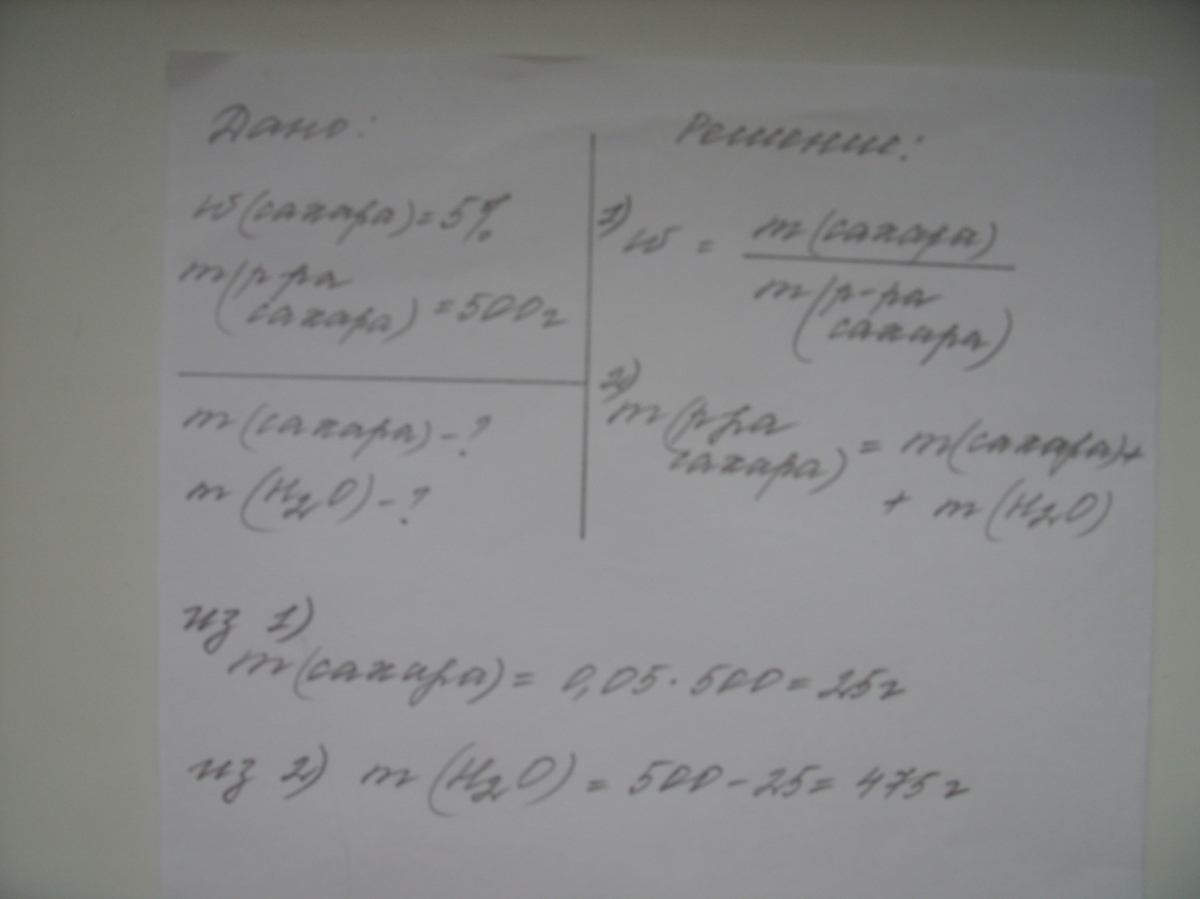 Дано:
w(сахара)=5%
m(р-ра
сахара)=500г
m(сахара)-?
m(H₂O)-?
Решение:
1) w = m(сахара)
m(р-ра
сахара)
2)
m(р-ра
сахара) = m(сахара)+
+ m(H₂O)
из 1)
m(сахара)= 0,05·500=25г
из 2) m(H₂O)=500-25=475г